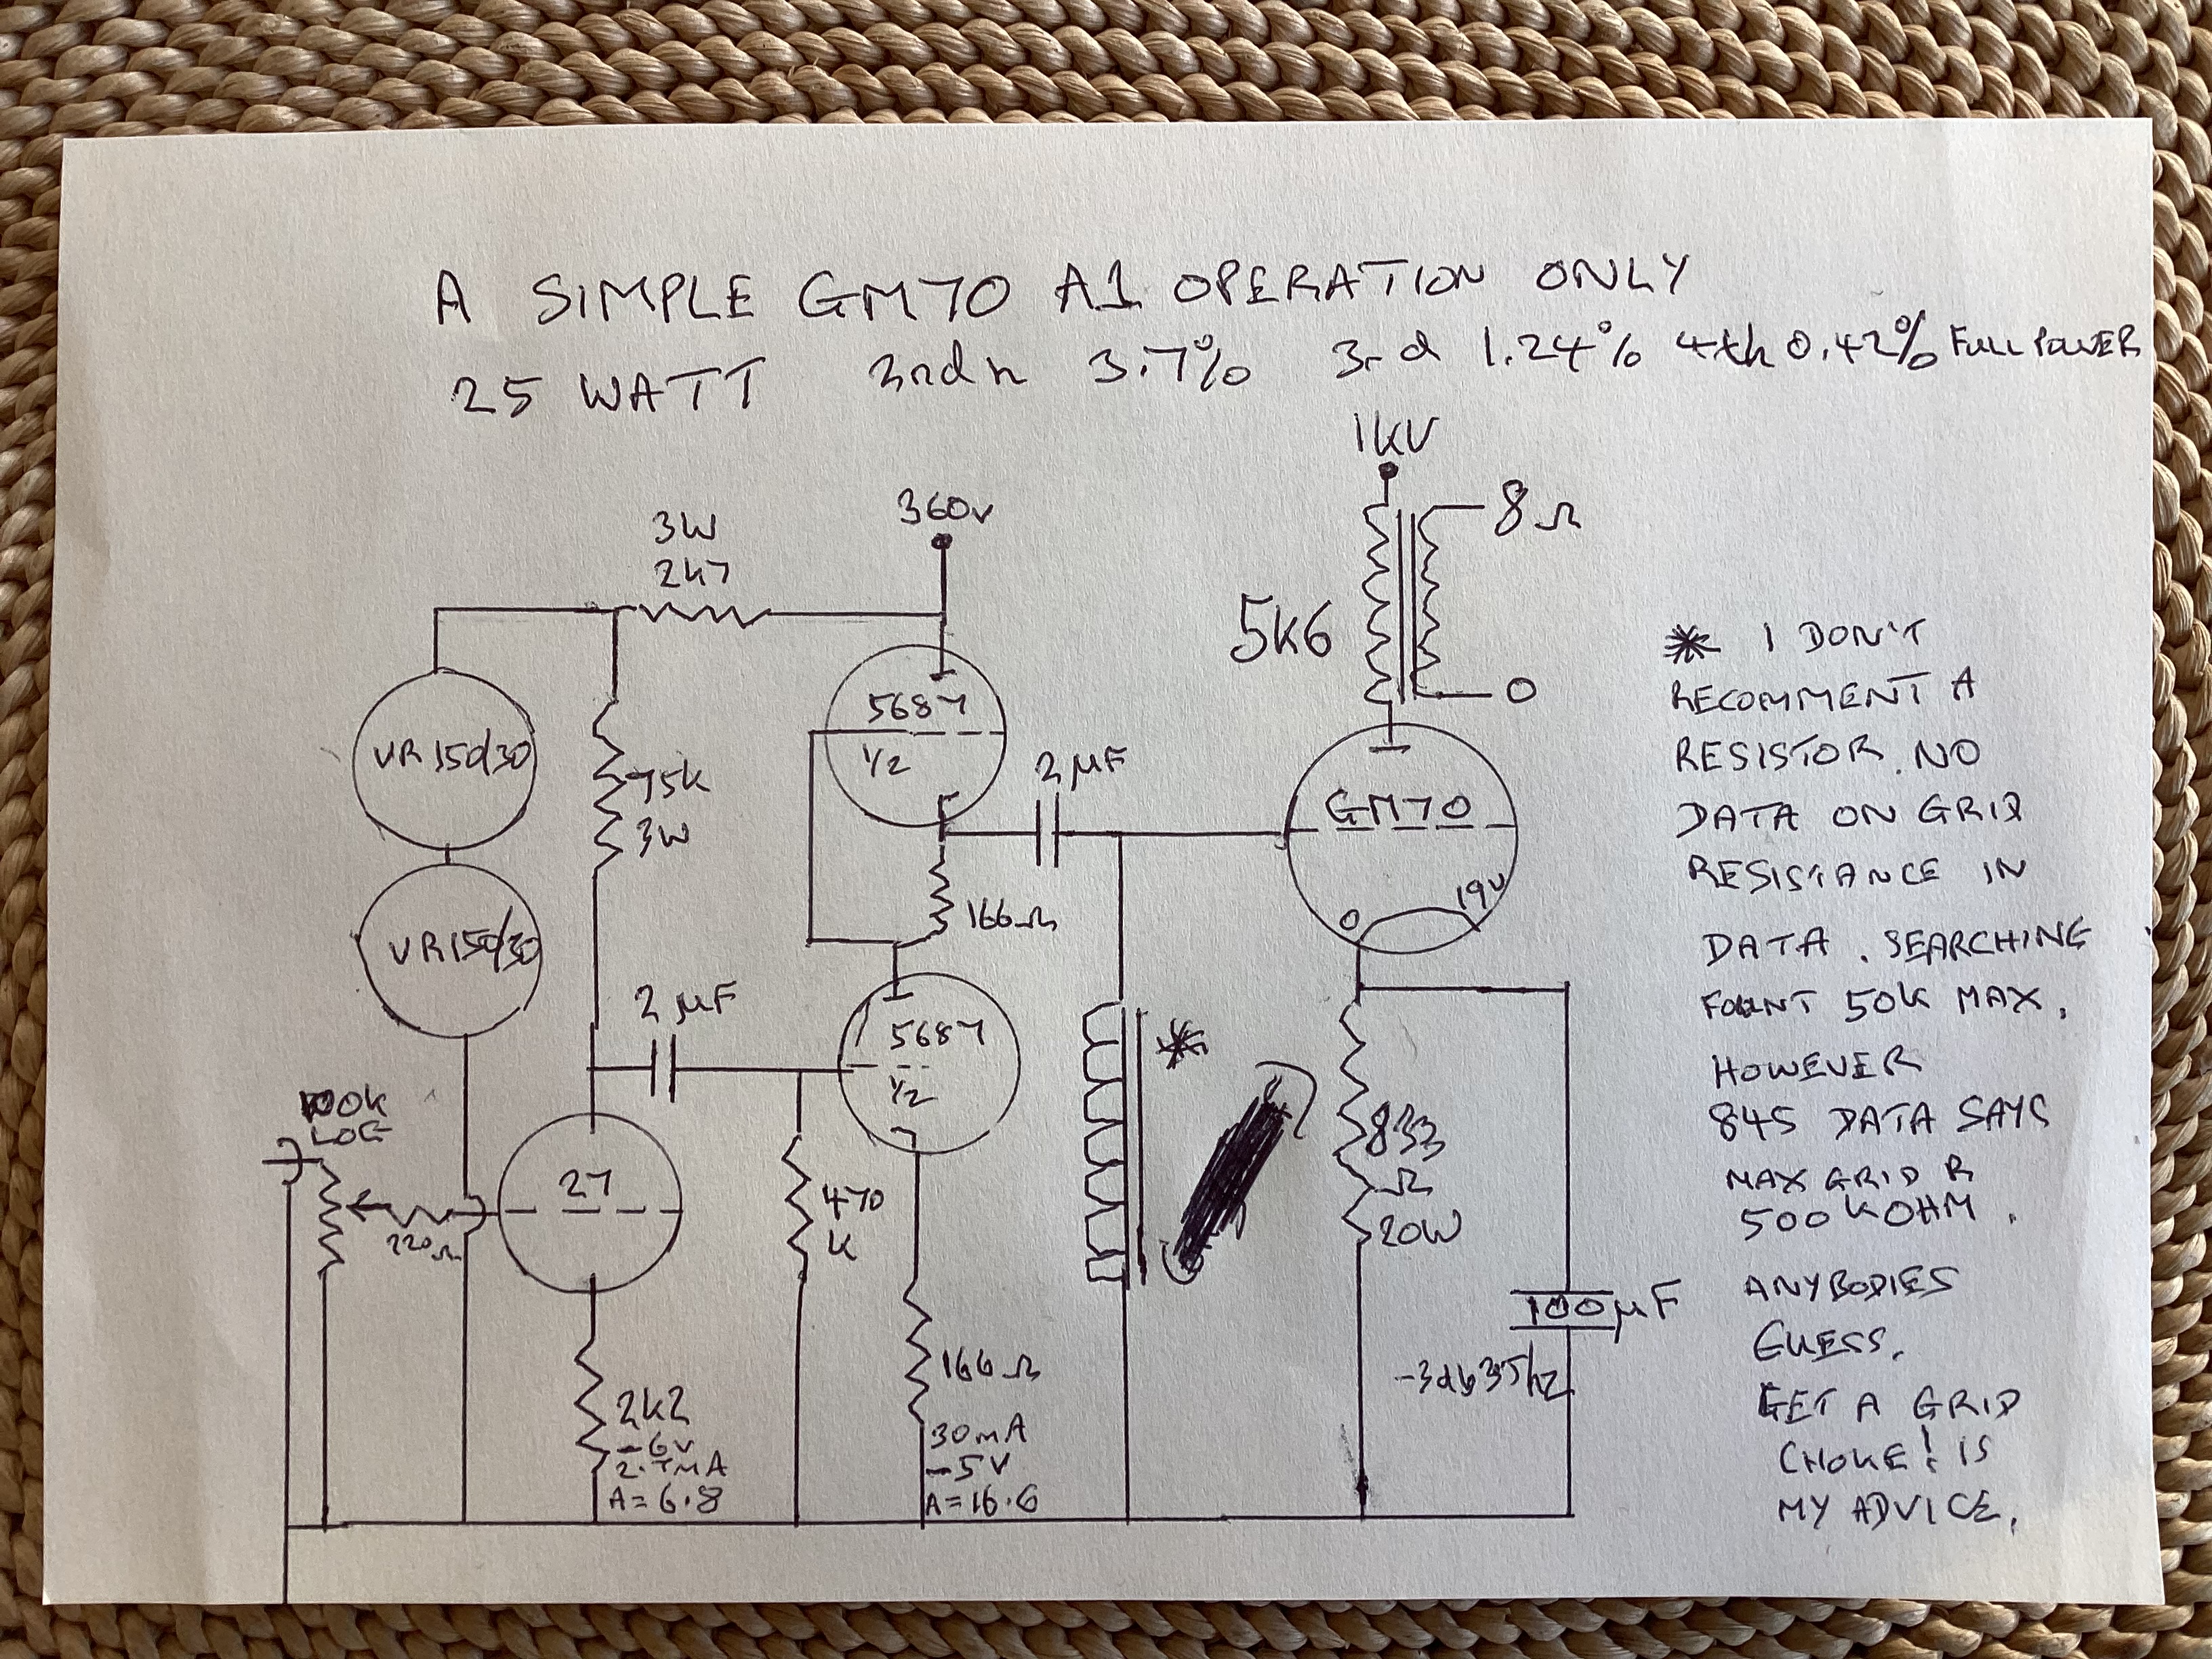 A SIMPLE GM70 A1 OPERATION ONLY
25 WATT 2nd h 3.7% 3rd 1.24% 4th 0.42% FULL POWER
1KV
8Ω
5K6
0
360V
3W
2K7
VR150/30
VR150/30
75K
3W
5687
1/2
2µF
166Ω
GM70
0 19V
2µF
5687
1/2
100K
LOG
220Ω
27
470
K
*
833
Ω
20W
100µF
-3db 35hz
2K2
-6V
2.7MA
A=6.8
166Ω
30MA
-5V
A=16.6
* I DON'T
RECOMMENT A
RESISTOR. NO
DATA ON GRID
RESISTANCE IN
DATA. SEARCHING
FOUNT 50K MAX.
HOWEVER
845 DATA SAYS
MAX GRID R
500KOHM.
ANYBODIES
GUESS.
GET A GRID
CHOKE! IS
MY ADVICE.